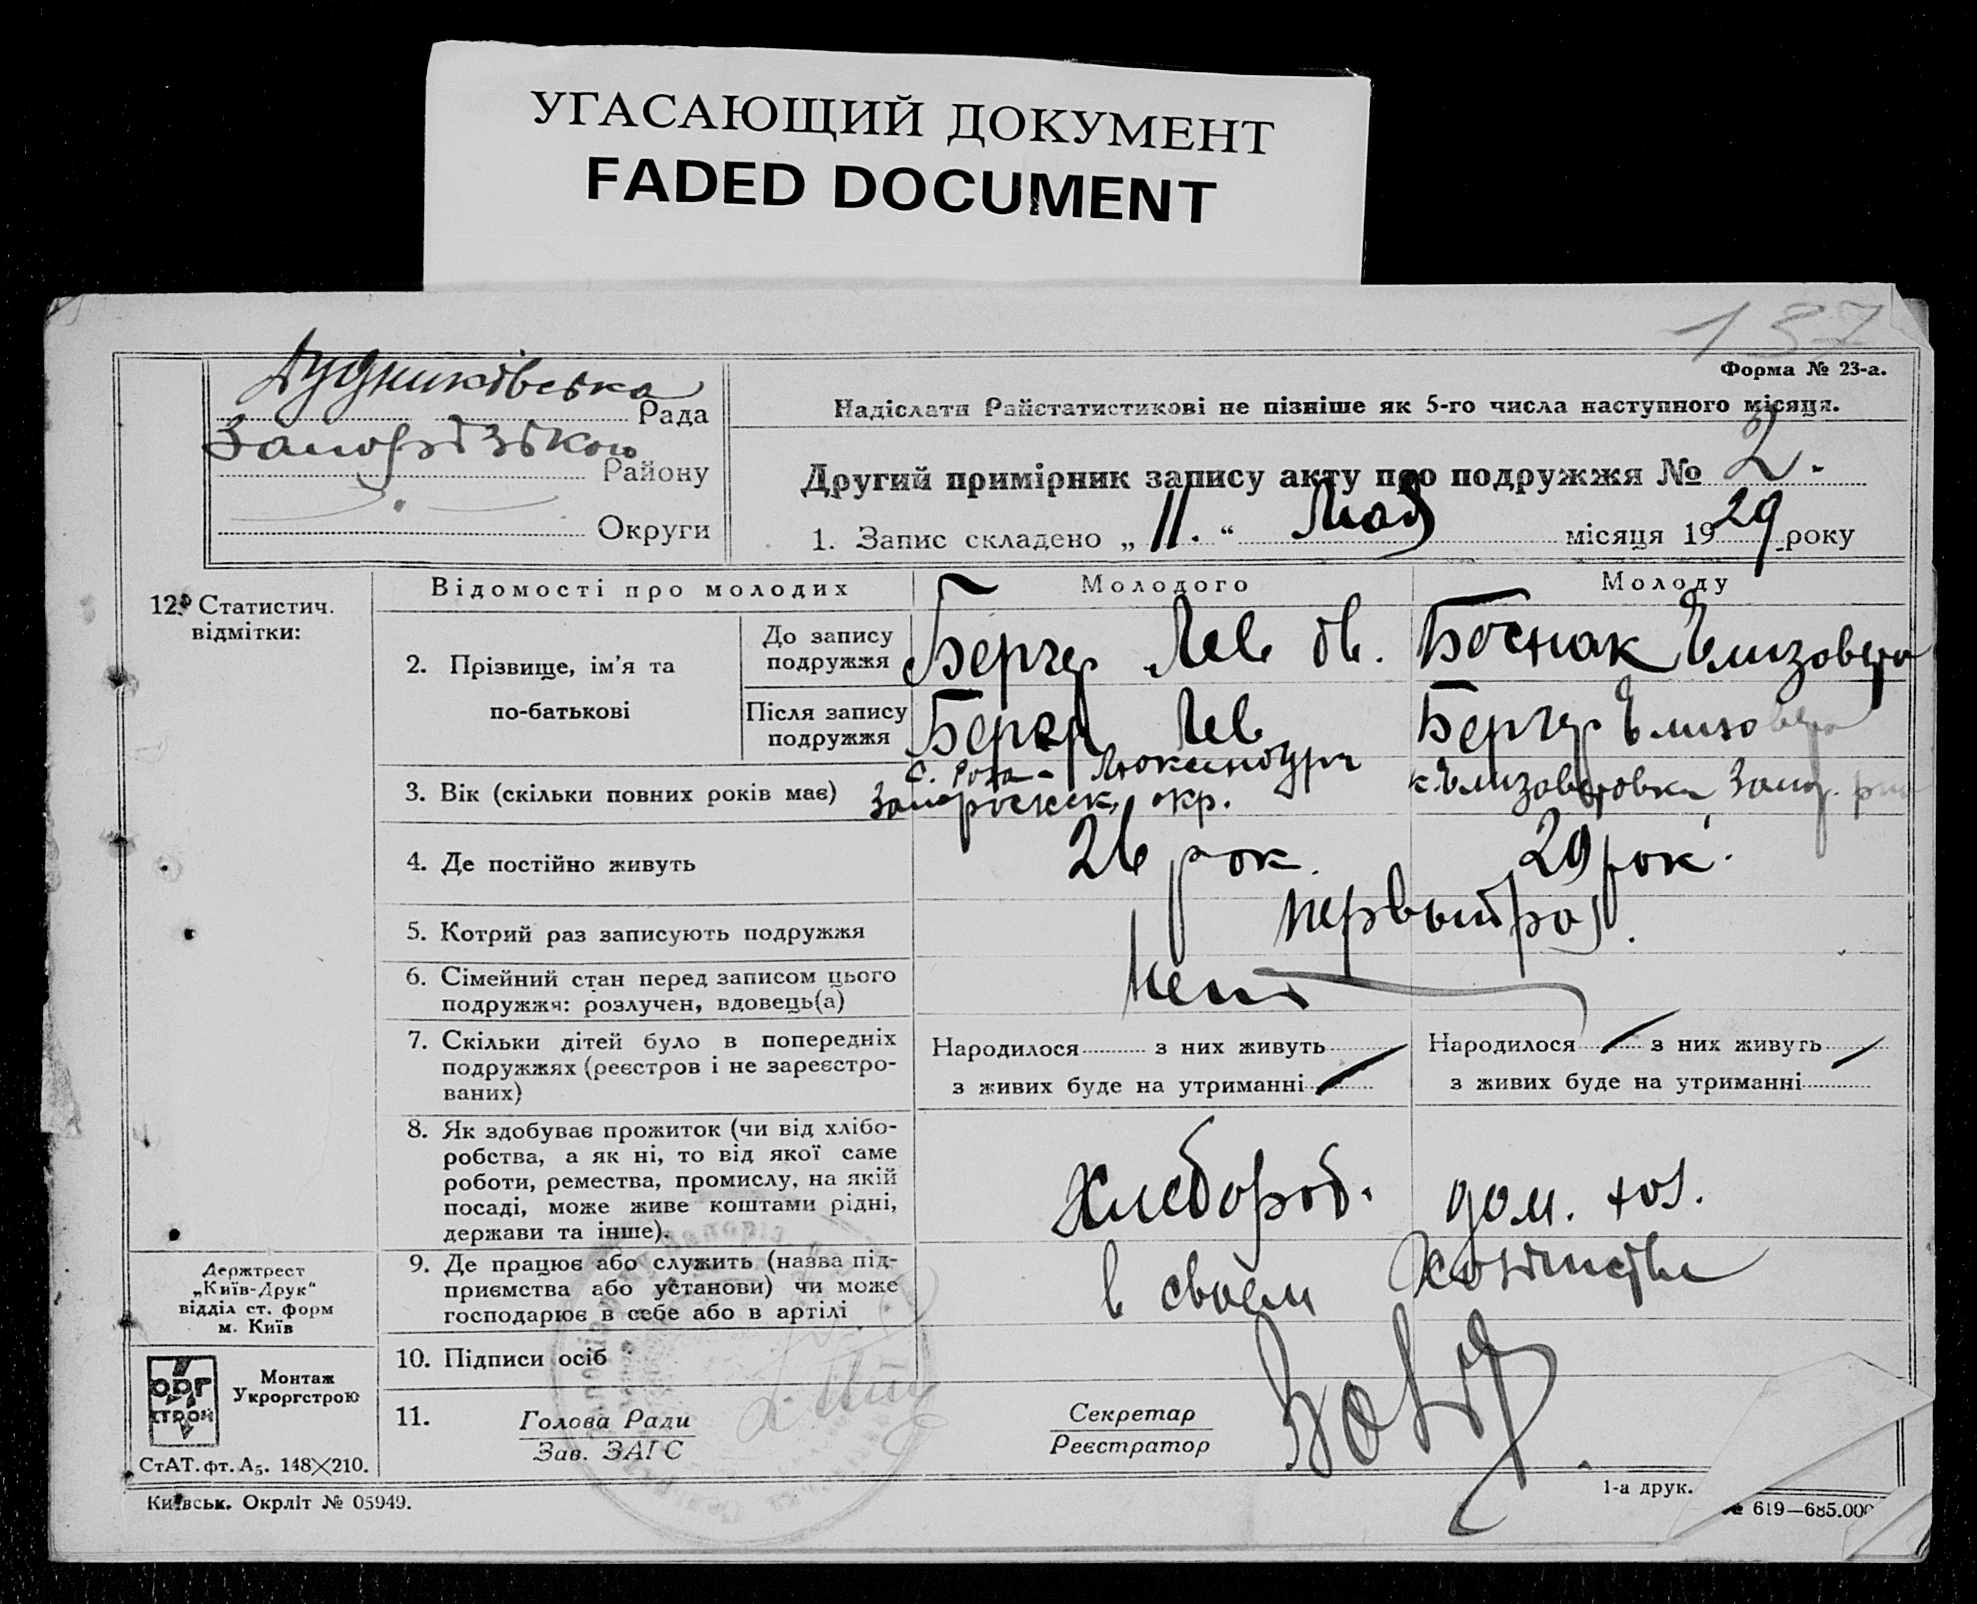 УГАСАЮЩИЙ ДОКУМЕНТ
FADED DOCUMENT
137
Форма № 23-а.
Рада
Району
Округи
Надіслати Райстатистикові не пізніше як 5-го числа наступного місяця.
Другий примірник запису акту про подружжя № 2.
1. Запис складено „ 11. “ Мая місяця 1929 року
12. Статистич.
відмітки:
Відомості про молодих
Молодого
Молоду
2. Прізвище, ім'я та
по-батькові
До запису
подружжя
Бергер Лев
Боснак Елизовета
Після запису
подружжя
Бергер Лев
Бергер Елизовета
3. Вік (скільки повних років має)
с. Роза-Люксинбург
Запорожск. окр.
к. Елизоветовка Запор.
4. Де постійно живуть
26 рок.
29 рок.
5. Котрий раз записують подружжя
первый раз.
6. Сімейний стан перед записом цього
подружжя: розлучен, вдовець(а)
7. Скільки дітей було в попередніх
подружжях (реєстров і не зареєстро-
ваних)
Народилося з них живуть
з живих буде на утриманні
Народилося з них живуть
з живих буде на утриманні
8. Як здобуває прожиток (чи від хлібо-
робства, а як ні, то від якої саме
роботи, ремества, промислу, на якій
посаді, може живе коштами рідні,
держави та інше).
Хлебороб.
дом. хоз.
9. Де працює або служить (назва під-
приємства або установи) чи може
господарює в себе або в артілі
в своем хозяистве
10. Підписи осіб
11. Голова Ради
Зав. ЗАГС
Секретар
Реєстратор
Держтрест
„Київ-Друк“
відділ ст. форм
м. Київ
ОРГ
СТРОЙ
Монтаж
Укроргстрою
СтАТ. фт. А₅. 148×210.
Київськ. Окрліт № 05949.
1-а друк.
№ 619—685.000